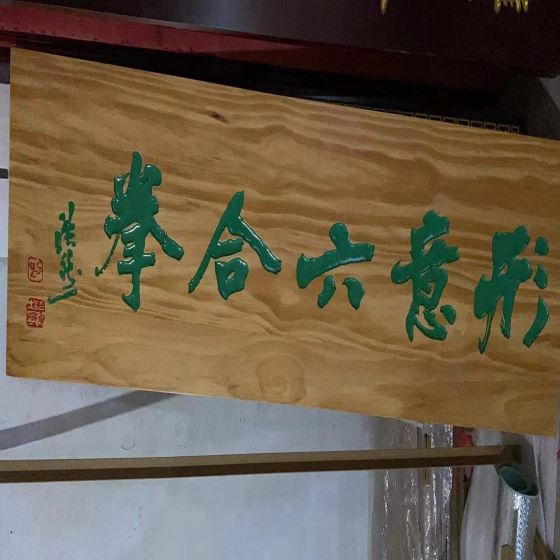 形意六合拳